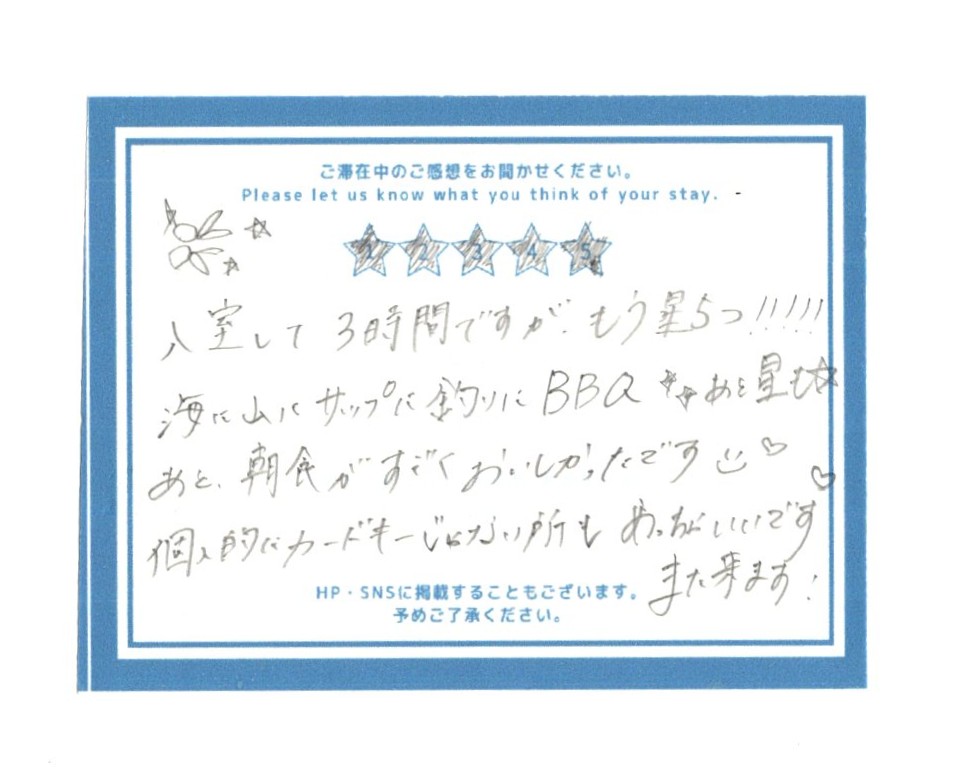 ご滞在中のご感想をお聞かせください。
Please let us know what you think of your stay.
1 2 3 4 5
入室して3時間ですが、もう星5つ!!!!!
海に山にサップに釣りにBBQ☆☆あと星も☆
あと、朝食がすごくおいしかったです♡
個人的にカードキーじゃない所もめっちゃいいです♡
また来ます!
HP・SNSに掲載することもございます。
予めご了承ください。